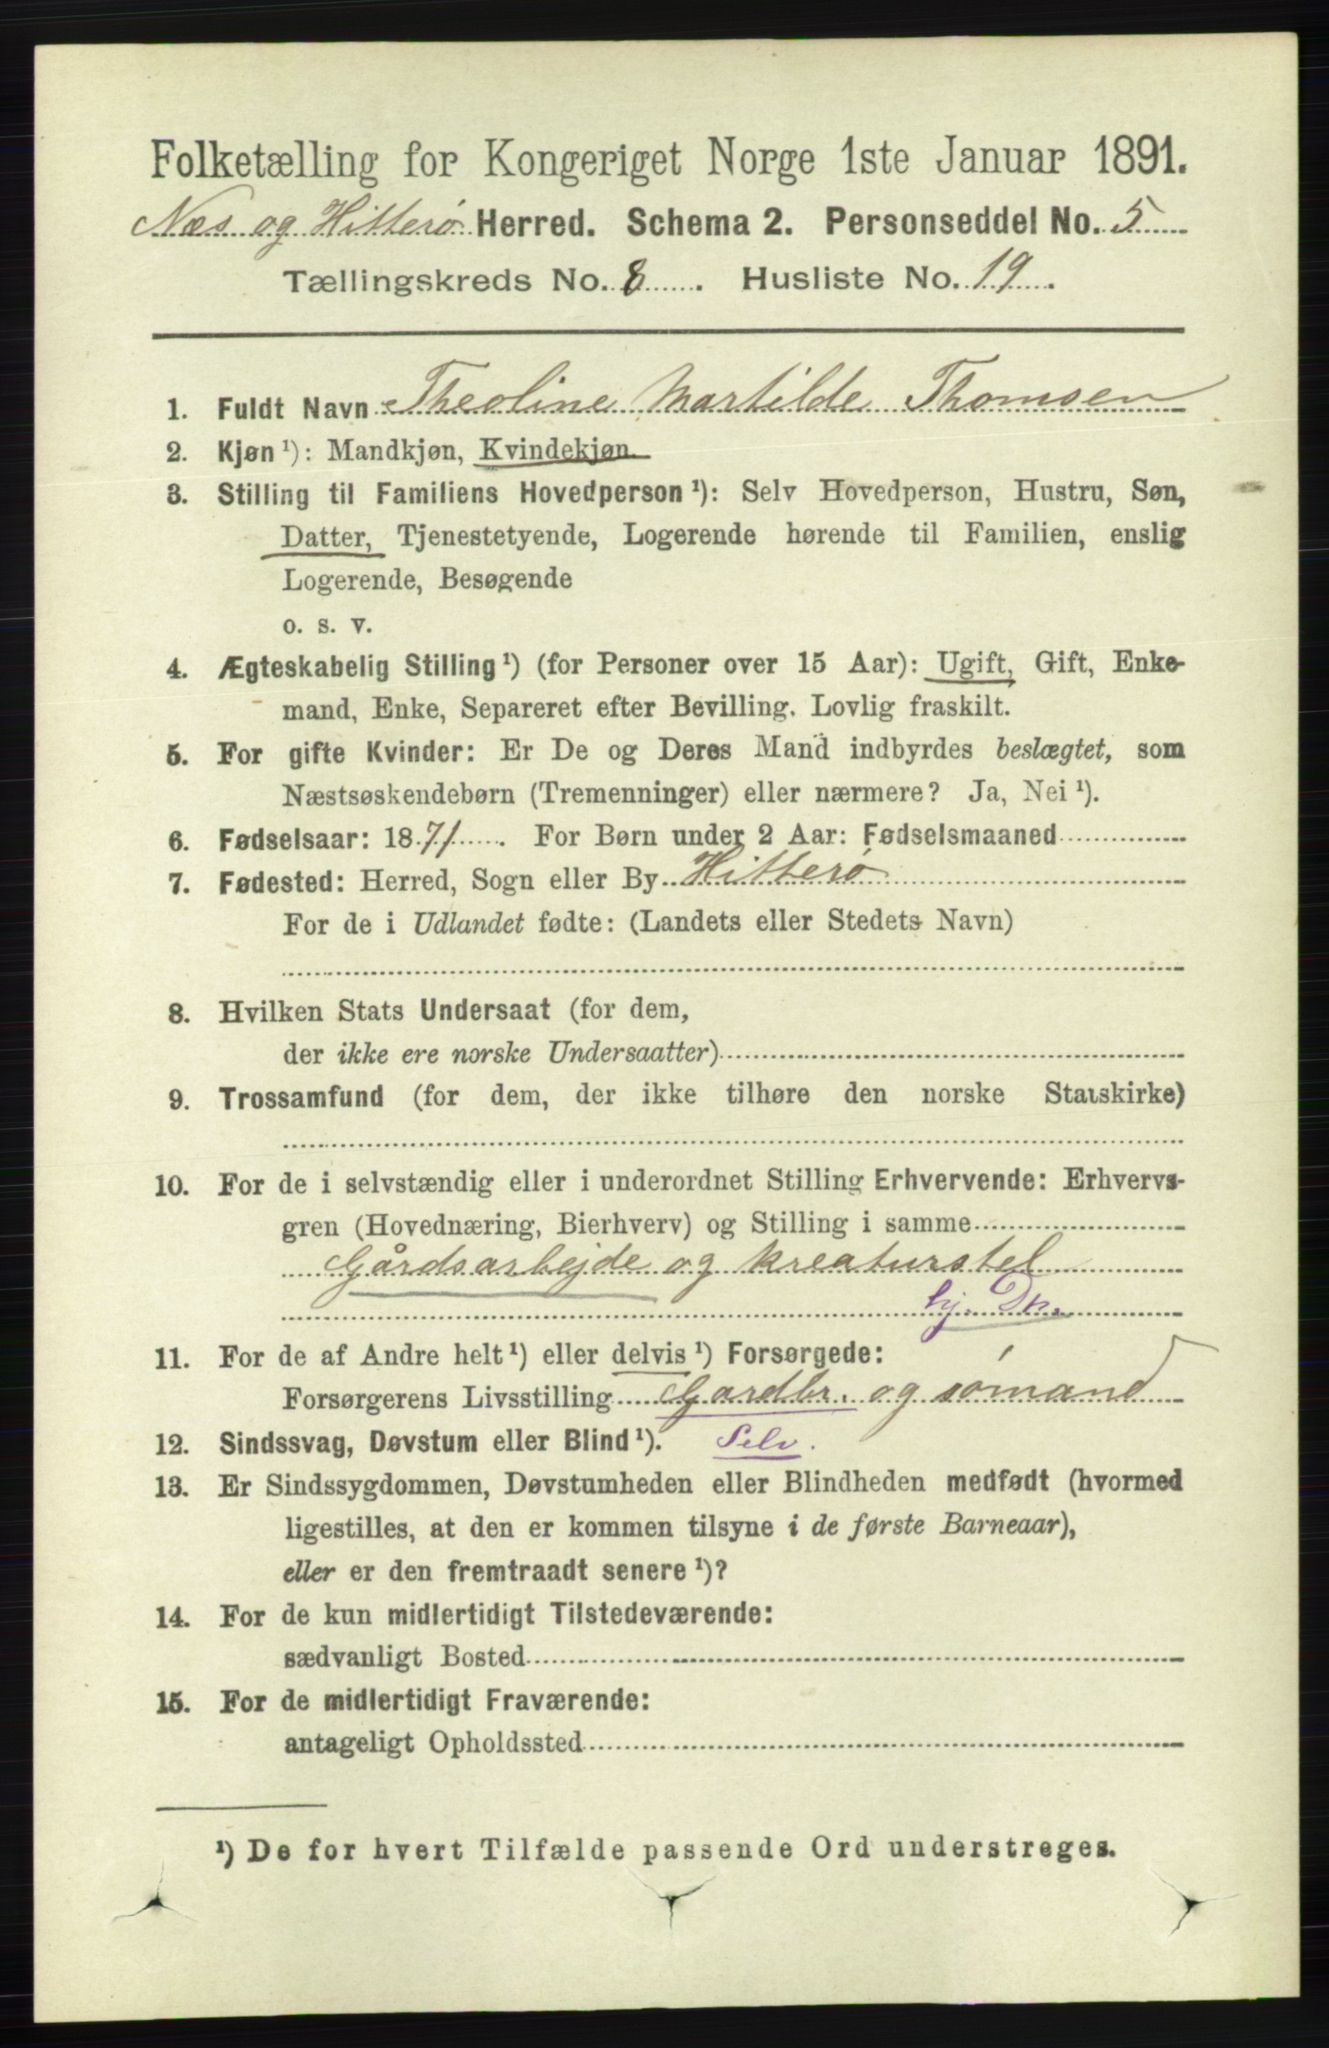 Folketælling for Kongeriget Norge 1ste Januar 1891.
Næs og Hitterø Herred. Schema 2. Personseddel No. 5
Tællingskreds No. 8. Husliste No. 19.
1. Fuldt Navn Theoline Martilde Thomsen
2. Kjøn ¹): Mandkjøn, Kvindekjøn.
3. Stilling til Familiens Hovedperson ¹): Selv Hovedperson, Hustru, Søn,
Datter, Tjenestetyende, Logerende hørende til Familien, enslig
Logerende, Besøgende
o. s. v.
4. Ægteskabelig Stilling ¹) (for Personer over 15 Aar): Ugift, Gift, Enke-
mand, Enke, Separeret efter Bevilling. Lovlig fraskilt.
5. For gifte Kvinder: Er De og Deres Mand indbyrdes beslægtet, som
Næstsøskendebørn (Tremenninger) eller nærmere? Ja, Nei ¹).
6. Fødselsaar: 1871. For Børn under 2 Aar: Fødselsmaaned
7. Fødested: Herred, Sogn eller By Hitterø
For de i Udlandet fødte: (Landets eller Stedets Navn)
8. Hvilken Stats Undersaat (for dem,
der ikke ere norske Undersaatter)
9. Trossamfund (for dem, der ikke tilhøre den norske Statskirke)
10. For de i selvstændig eller i underordnet Stilling Erhvervende: Erhvervs-
gren (Hovednæring, Bierhverv) og Stilling i samme
Gårdsarbejde og kreaturstel
hj. Dr.
11. For de af Andre helt ¹) eller delvis ¹) Forsørgede:
Forsørgerens Livsstilling Gardbr. og sømand
12. Sindssvag, Døvstum eller Blind ¹). Selv.
13. Er Sindssygdommen, Døvstumheden eller Blindheden medfødt (hvormed
ligestilles, at den er kommen tilsyne i de første Barneaar),
eller er den fremtraadt senere ¹)?
14. For de kun midlertidigt Tilstedeværende:
sædvanligt Bosted
15. For de midlertidigt Fraværende:
antageligt Opholdssted
¹) De for hvert Tilfælde passende Ord understreges.